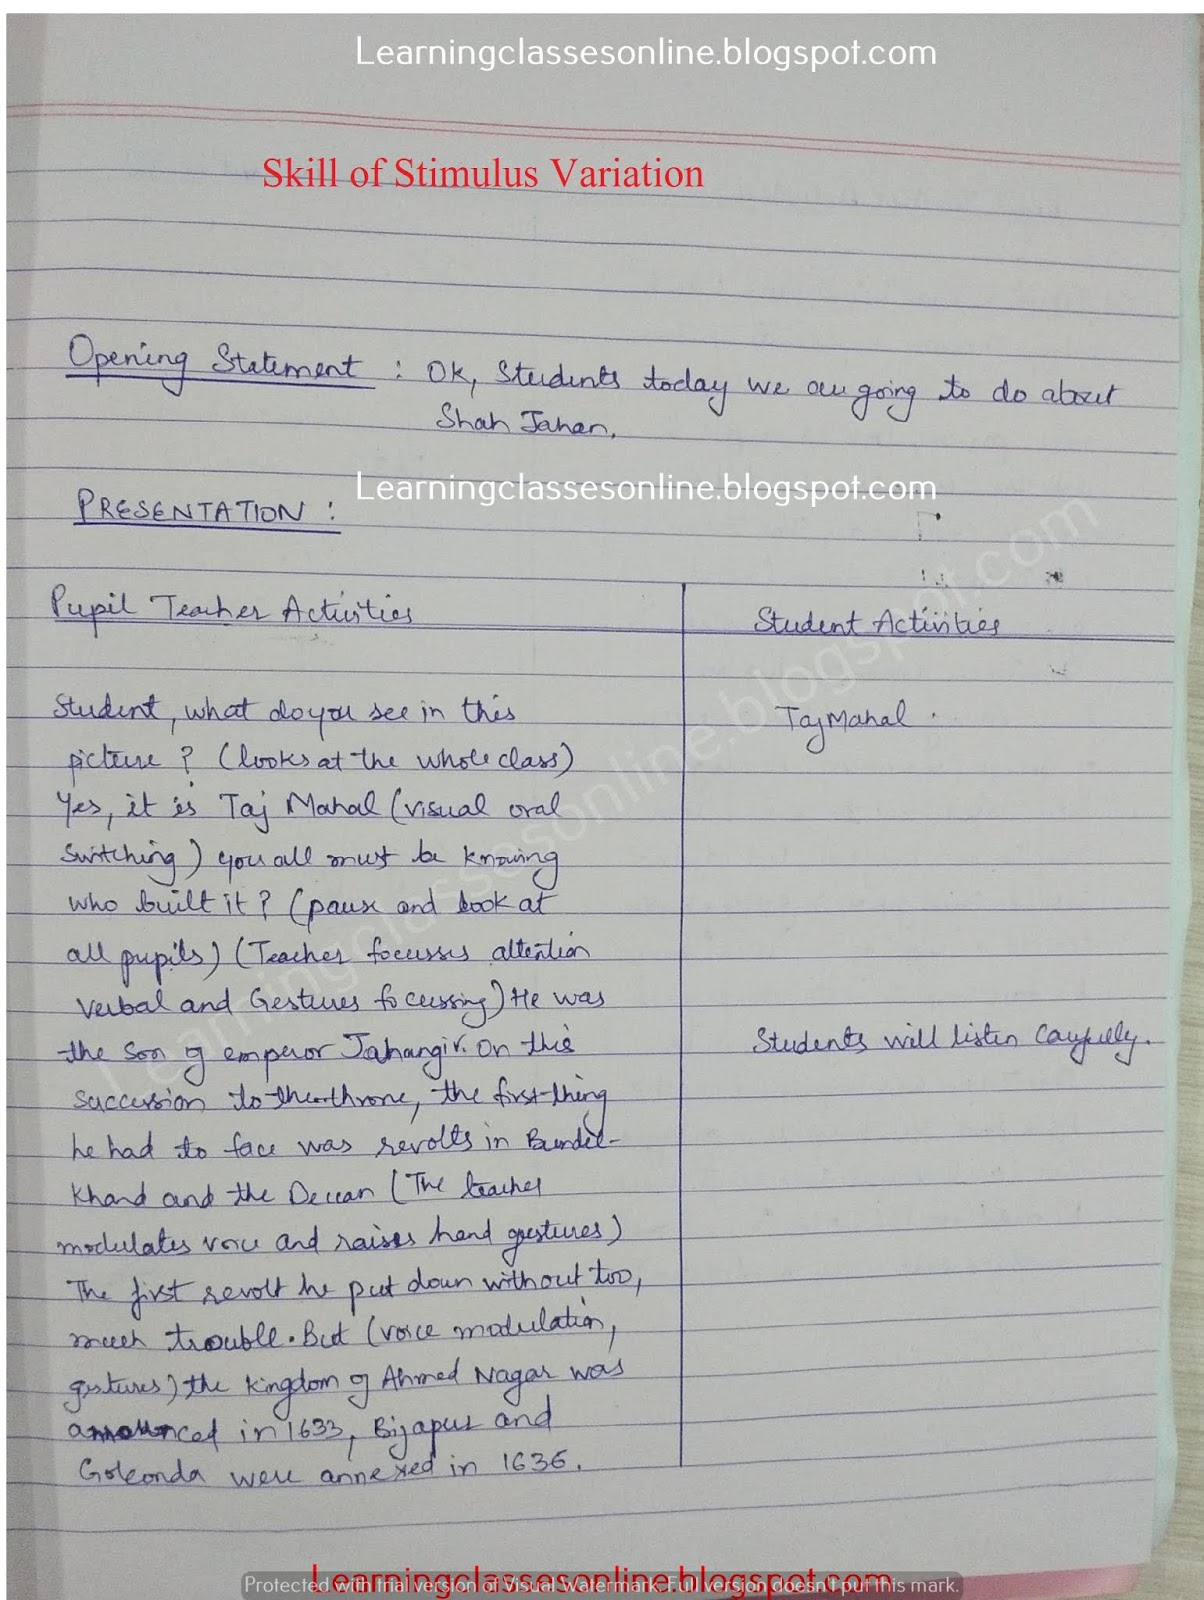 Learningclassesonline.blogspot.com
Skill of Stimulus Variation
Opening Statement : OK, Students today we are going to do about
Shah Jahan.
Learningclassesonline.blogspot.com
PRESENTATION :
Pupil Teacher Activities
Student Activities
Student, what do you see in this
Taj Mahal.
picture ? (looks at the whole class)
Yes, it is Taj Mahal (visual oral
switching) you all must be knowing
who built it ? (pause and look at
all pupils) (Teacher focusses attention
verbal and Gestures focussing) He was
the son of emperor Jahangir. On this
Students will listen carefully.
succession to the throne, the first thing
he had to face was revolts in Bundel-
khand and the Deccan (The teacher
modulates voice and raises hand gestures)
The first revolt he put down without too,
much trouble. But (voice modulation,
gestures) the kingdom of Ahmed Nagar was
in 1633, Bijapur and
Golconda were annexed in 1636.
Learningclassesonline.blogspot.com
Learningclassesonline.blogspot.com
Protected with trial version of Visual Watermark. Full version doesn't put this mark.